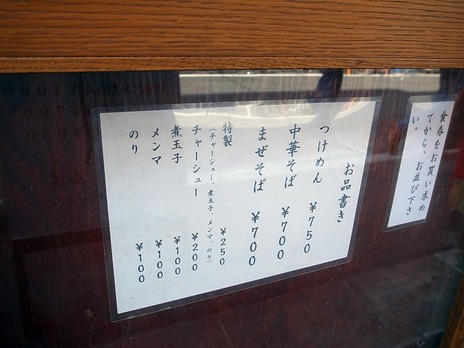 食券をお買い求め
てから、お並び下さ
い。
お品書き
つけめん ¥750
中華そば ¥700
まぜそば ¥700
特製 ¥250
(チャーシュー、煮玉子、メンマ、のり)
チャーシュー ¥200
煮玉子 ¥100
メンマ ¥100
のり ¥100